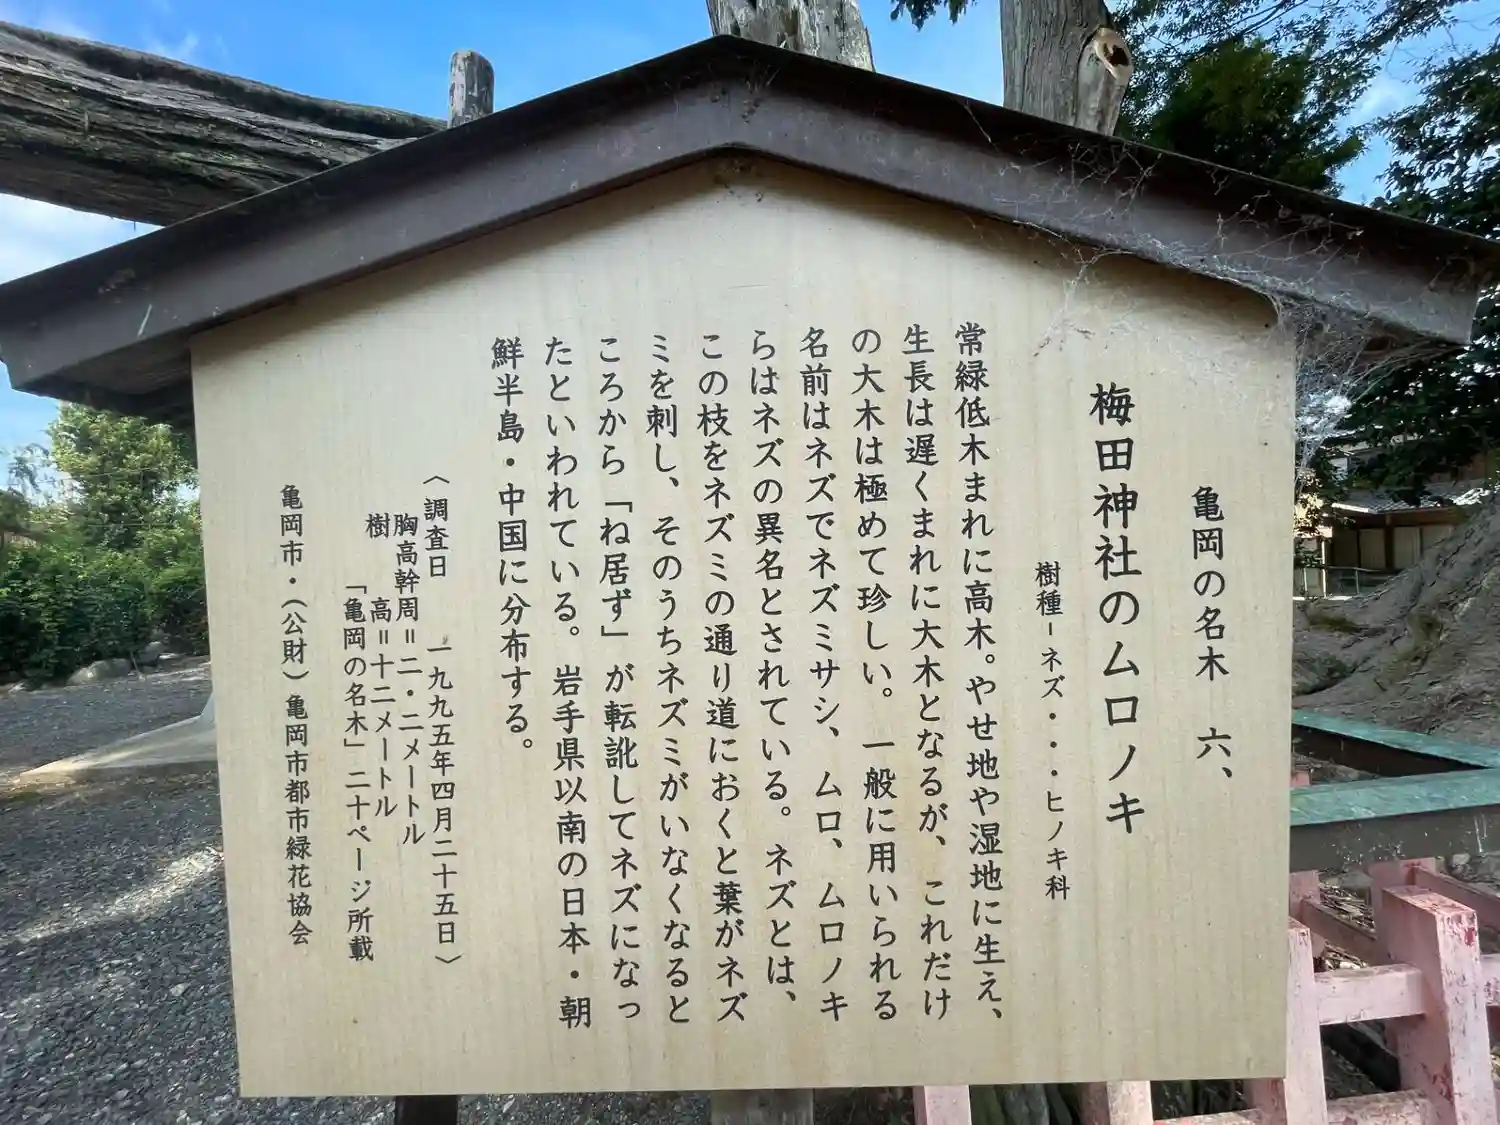 亀岡の名木 六、
梅田神社のムロノキ
樹種-ネズ・・・ヒノキ科
常緑低木まれに高木。やせ地や湿地に生え、
生長は遅くまれに大木となるが、これだけ
の大木は極めて珍しい。一般に用いられる
名前はネズでネズミサシ、ムロ、ムロノキ
らはネズの異名とされている。ネズとは、
この枝をネズミの通り道におくと葉がネズ
ミを刺し、そのうちネズミがいなくなると
ころから「ね居ず」が転訛してネズになっ
たといわれている。岩手県以南の日本・朝
鮮半島・中国に分布する。
〈調査日 一九九五年四月二十五日〉
胸高幹周=二・二メートル
樹 高=十二メートル
「亀岡の名木」二十ページ所載
亀岡市・(公財)亀岡市都市緑花協会